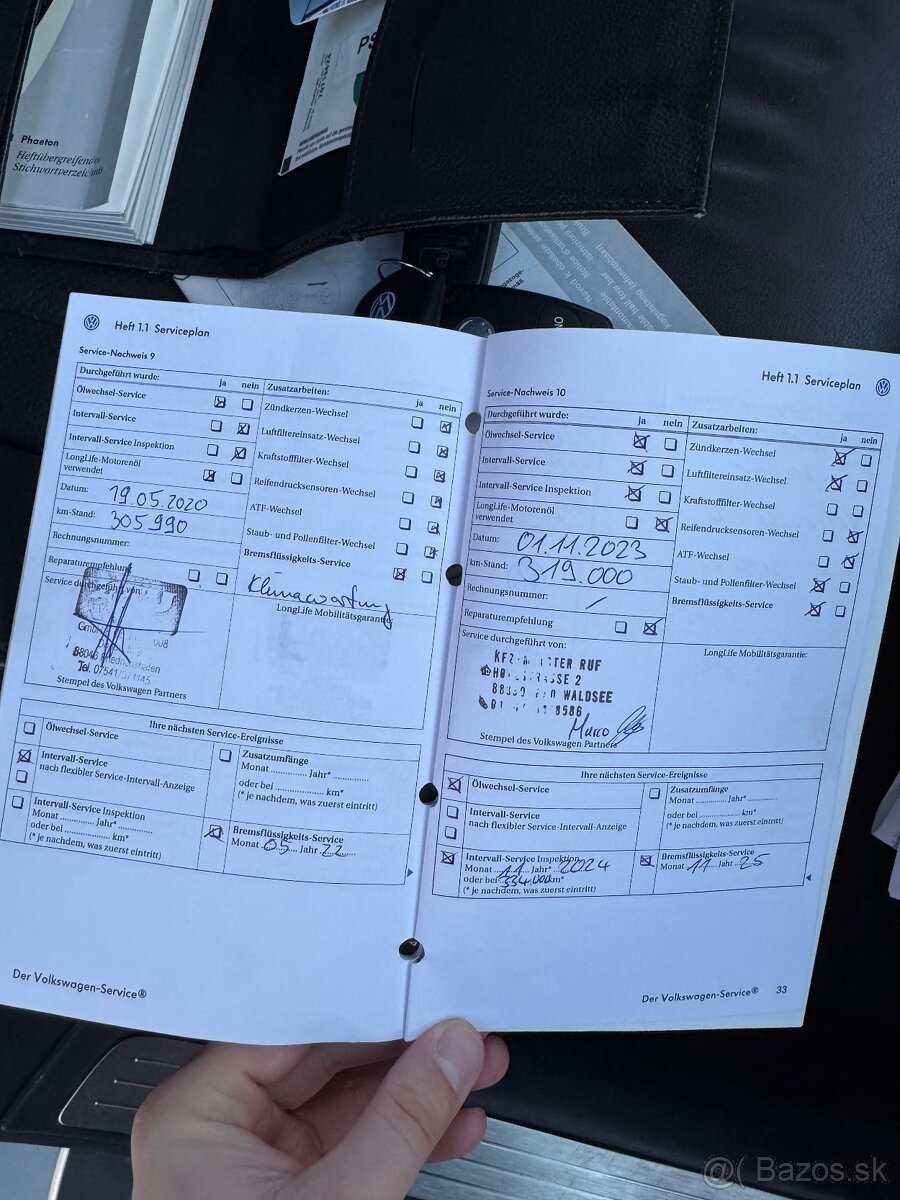 PS
Phaeton
Heftübergreifendes
Stichwortverzeichnis
Heft 1.1 Serviceplan
Service-Nachweis 9
Durchgeführt wurde: ja nein
Ölwechsel-Service
Intervall-Service
Intervall-Service Inspektion
LongLife-Motorenöl
verwendet
Datum: 19.05.2020
km-Stand: 305990
Rechnungsnummer:
Reparaturempfehlung
Service durchgeführt von:
88046 Friedrichshafen
Tel. 07541/371145
Stempel des Volkswagen Partners
Zusatzarbeiten: ja nein
Zündkerzen-Wechsel
Luftfiltereinsatz-Wechsel
Kraftstofffilter-Wechsel
Reifendrucksensoren-Wechsel
ATF-Wechsel
Staub- und Pollenfilter-Wechsel
Bremsflüssigkeits-Service
Klimawartung
LongLife Mobilitätsgarantie:
Ihre nächsten Service-Ereignisse
Ölwechsel-Service
Intervall-Service
nach flexibler Service-Intervall-Anzeige
Intervall-Service Inspektion
Monat .............. Jahr* ..............
oder bei ........................ km*
(* je nachdem, was zuerst eintritt)
Zusatzumfänge
Monat .............. Jahr* ..............
oder bei ........................ km*
(* je nachdem, was zuerst eintritt)
Bremsflüssigkeits-Service
Monat 05 Jahr 22
Der Volkswagen-Service®
Heft 1.1 Serviceplan
Service-Nachweis 10
Durchgeführt wurde: ja nein
Ölwechsel-Service
Intervall-Service
Intervall-Service Inspektion
LongLife-Motorenöl
verwendet
Datum: 01.11.2023
km-Stand: 319.000
Rechnungsnummer: /
Reparaturempfehlung
Service durchgeführt von:
RUF
2
WALDSEE
8586
Marco
Stempel des Volkswagen Partners
Zusatzarbeiten: ja nein
Zündkerzen-Wechsel
Luftfiltereinsatz-Wechsel
Kraftstofffilter-Wechsel
Reifendrucksensoren-Wechsel
ATF-Wechsel
Staub- und Pollenfilter-Wechsel
Bremsflüssigkeits-Service
LongLife Mobilitätsgarantie:
Ihre nächsten Service-Ereignisse
Ölwechsel-Service
Intervall-Service
nach flexibler Service-Intervall-Anzeige
Intervall-Service Inspektion
Monat 11 Jahr* 2024
oder bei 334.000 km*
(* je nachdem, was zuerst eintritt)
Zusatzumfänge
Monat .............. Jahr* ..............
oder bei ........................ km*
(* je nachdem, was zuerst eintritt)
Bremsflüssigkeits-Service
Monat 11 Jahr 25
Der Volkswagen-Service® 33
@( Bazos.sk